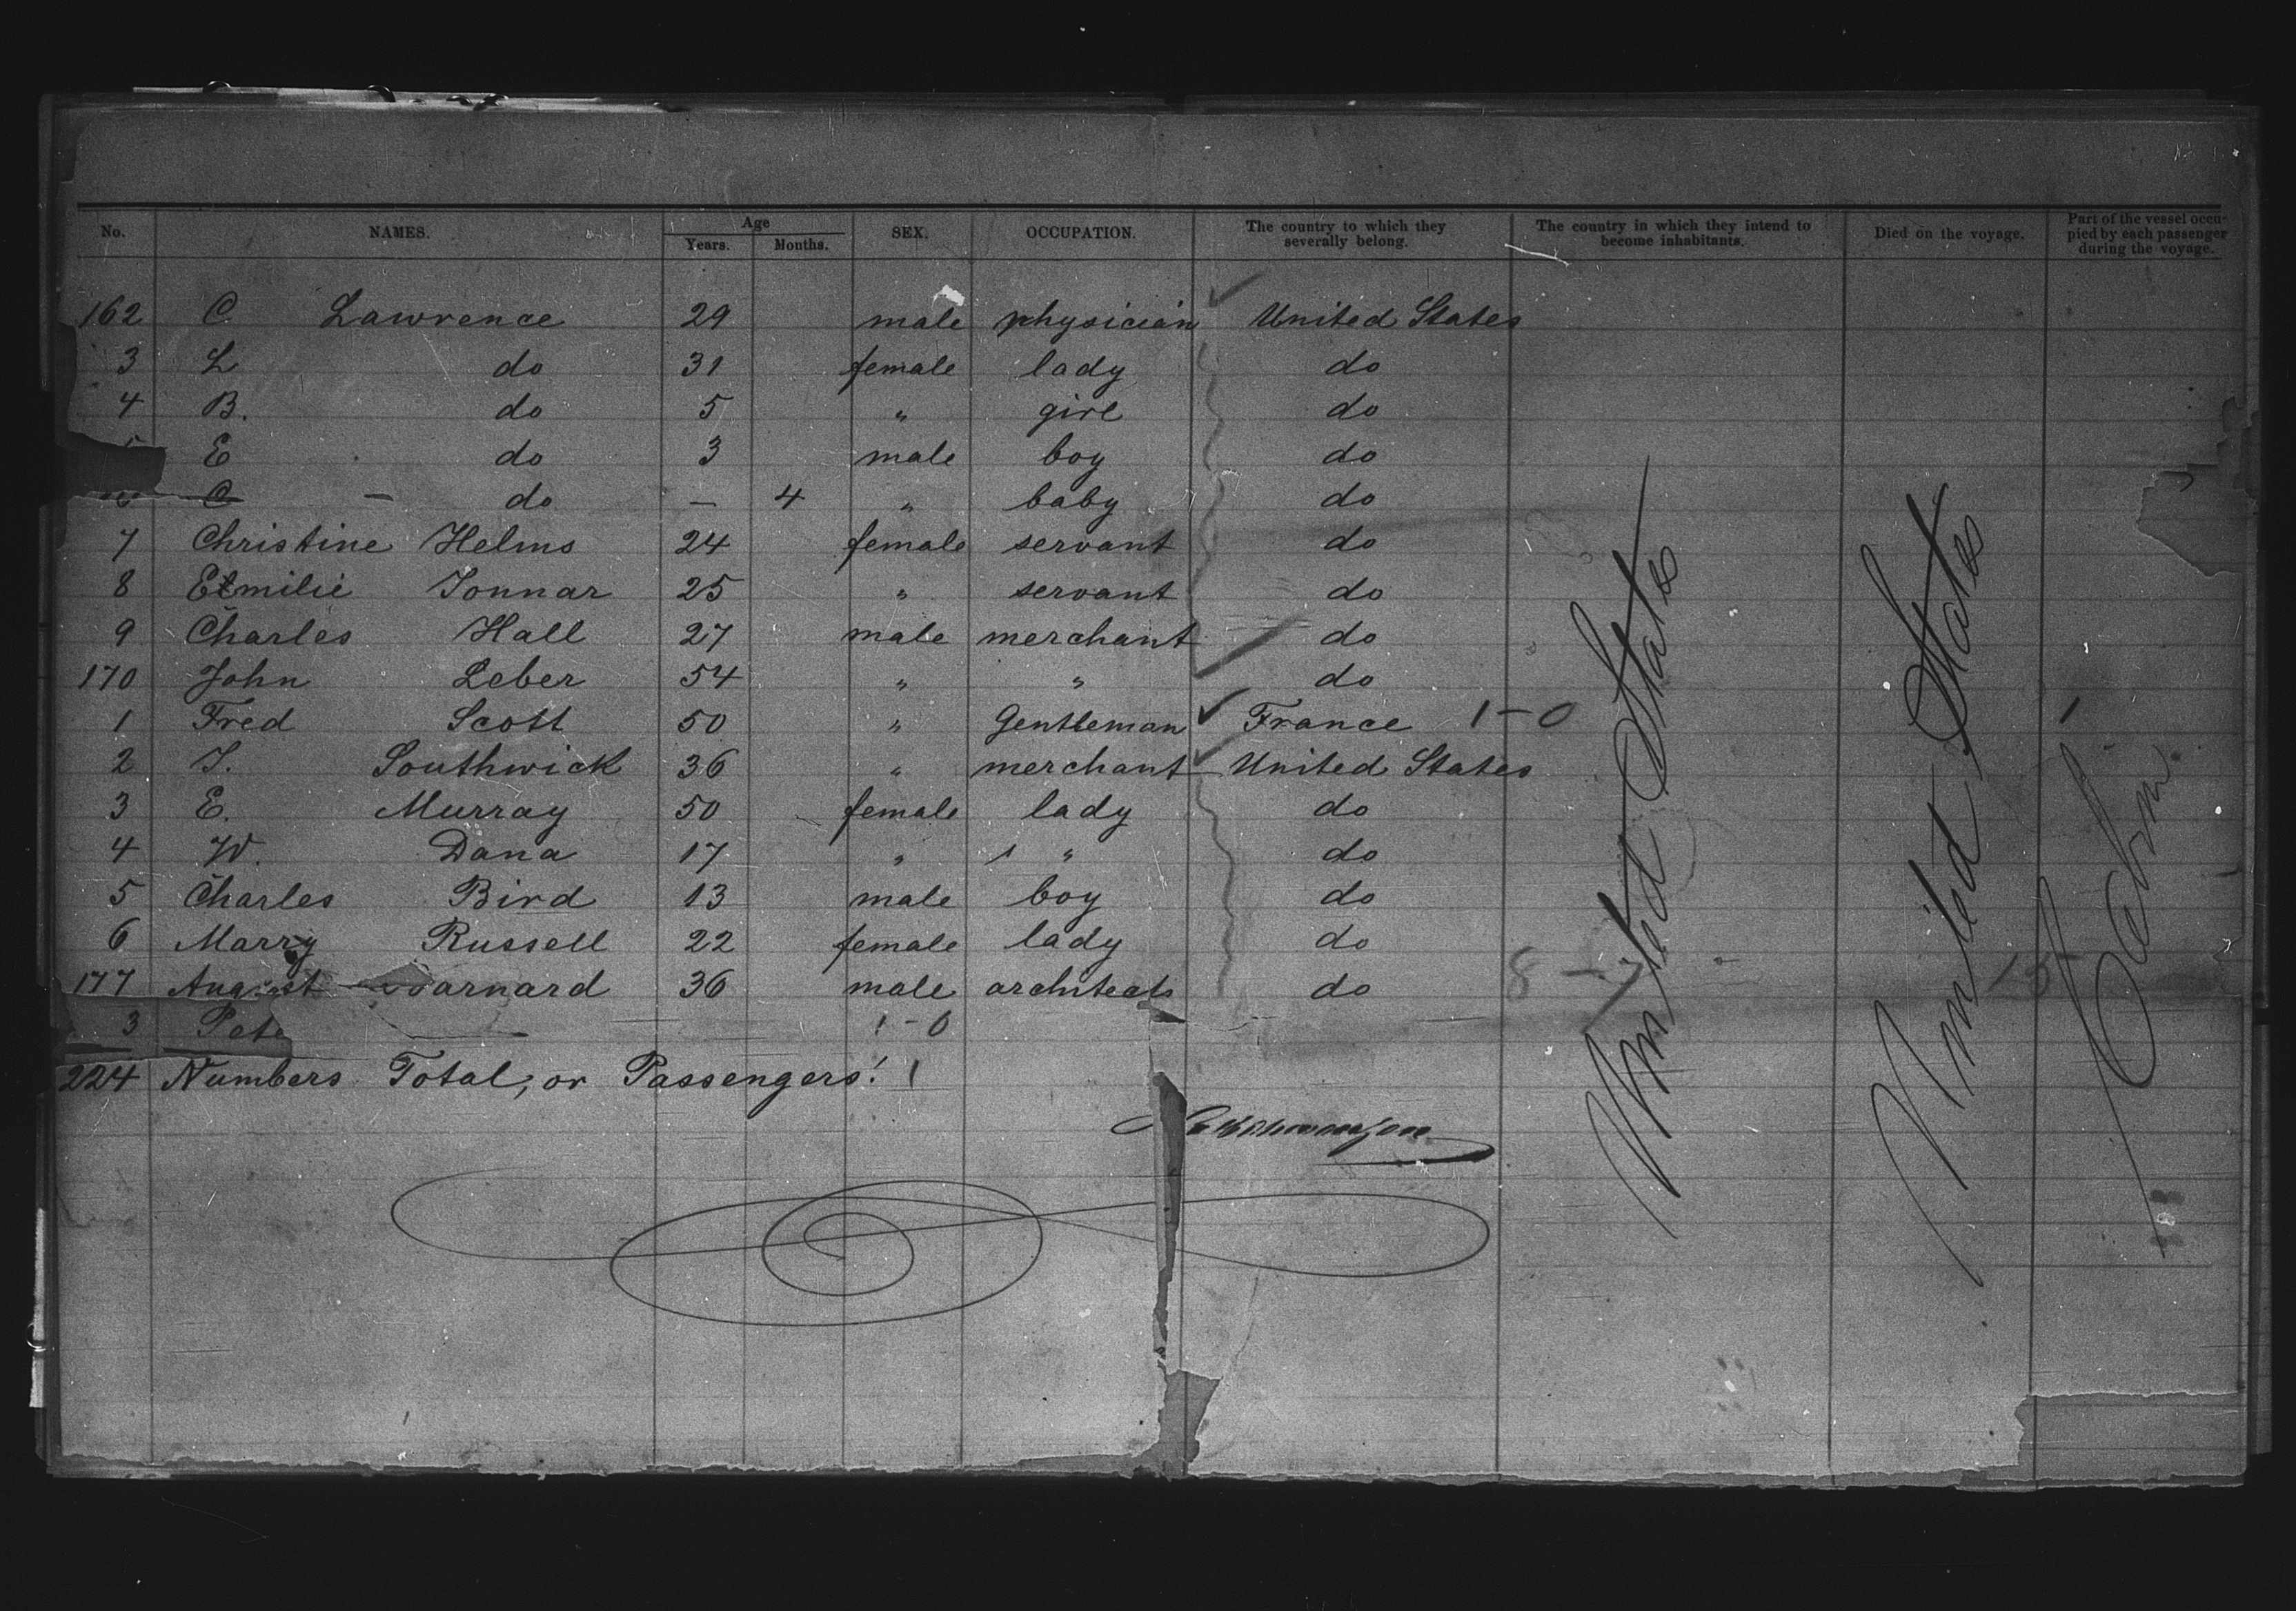 No. NAMES. Age Years. Months. SEX. OCCUPATION. The country to which they severally belong. The country in which they intend to become inhabitants. Died on the voyage. Part of the vessel occupied by each passenger during the voyage.
162 C. Lawrence 29 male physician United States
3 L do 31 female lady do
4 B. do 5 " girl do
E do 3 male boy do
C - do - 4 " baby do
7 Christine Helms 24 female servant do
8 Etmilie Tonnar 25 " servant do
9 Charles Hall 27 male merchant do
170 John Leber 54 " " do
1 Fred Scott 50 " Gentleman France 1-0
2 T. Southwick 36 " merchant United States
3 E. Murray 50 female lady do
4 W. Dana 17 " " do
5 Charles Bird 13 male boy do
6 Marry Russell 22 female lady do
177 August Barnard 36 male architect do
3 Pete 1-0
224 Numbers Total, or Passengers!
United States
United States
Cabin